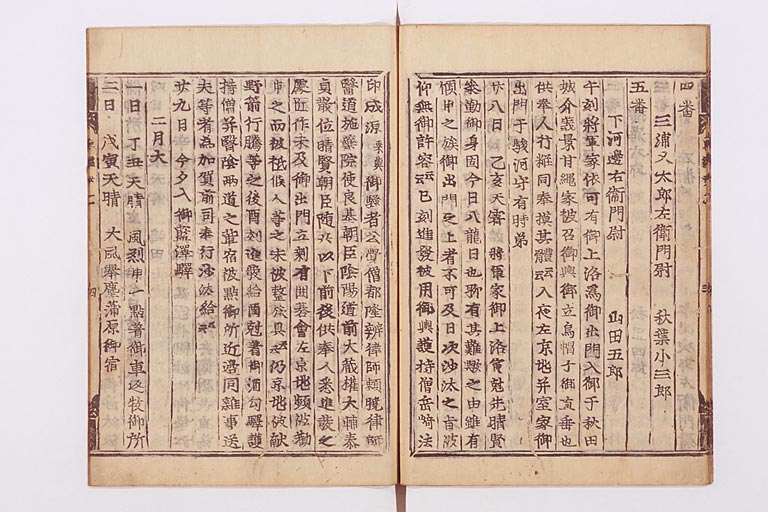 四番
三浦又太郎左衛門尉　秋葉小三郎
五番
下河邊右衛門尉　山田五郎
午刻將軍家依可有御上洛爲御出門入御于秋田
城介義景甘繩家被召御輿御立烏帽子御直垂也
供奉人行粧同奉挿其體云云入夜左京兆并室家御
出門于駿河守有時第
廿八日　乙亥天霽　將軍家御上洛寅剋先晴賢
參勤御身固今日八龍日也弥有其難歟之由雖有
傾申之族御出門之上者不可及日次沙汰之旨依
仰無御許容云云巳刻進發被用御輿護持僧岳崎法
印成源乘輿御驗者公覺僧都隆辨律師頼曉律師
醫道施藥院使良基朝臣陰陽道前大藏權大輔泰
貞讃位晴賢朝臣随兵以下前後供奉人悉進發之
處匠作未及御出門立刻有囲碁會左京兆頻被勸
申之而被相俟人等之未被整旅具云云仍京兆被献
野箭行騰等之後酉刻進發給酉剋着御酒匂驛護
持僧并醫陰兩道之輩宿被點御所近邊同雜事送
夫等者爲加賀前司奉行沙汰給云云
廿九日　今夕入御藍澤驛
二月大
一日　丁丑天晴　風烈申一點着御車返牧御所
二日　戊寅天晴　大風擧塵蒲原御宿